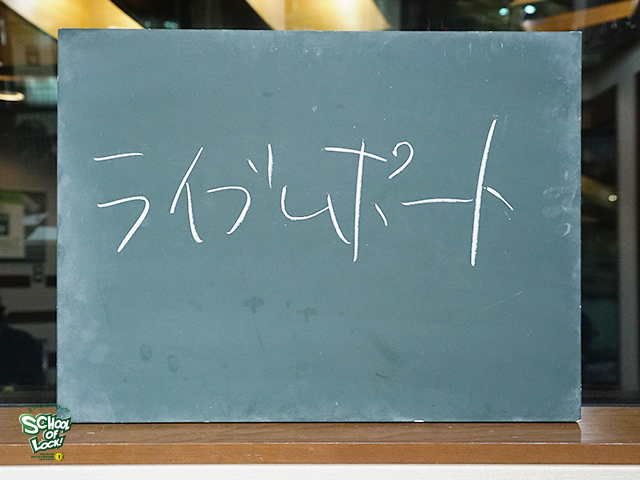 ライブレポート
SCHOOL OF LOCK!